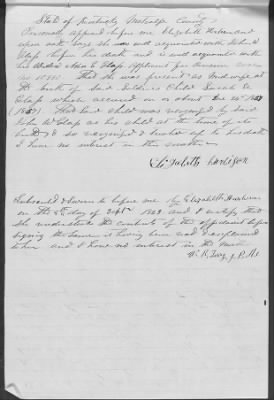 State of Kentucky Metcalfe County
Personally appeard before me Elizabeth Harbison and
upon oath says she was well acquainted with John W
Glass before his death and is well acquainted with
his Widow Glass Applicant for Pension
no. That she was present as Midwife at
the birth of said Soldiers Child Sarah E
Glass which occurred on or about Dec 24th
(1867) That said child was recognized by said
John W Glass as his child at the time of its
birth & so recognized & up to his death
I have no interest in this matter.
Elizabeth Harbison
Subscribed & Sworn to before me by Elizabeth Harbison
on the day of Sept 1889 and I certify that
she understands the contents of the affidavit before
signing the same it having been read & explained
to her and I have no interest in the matter